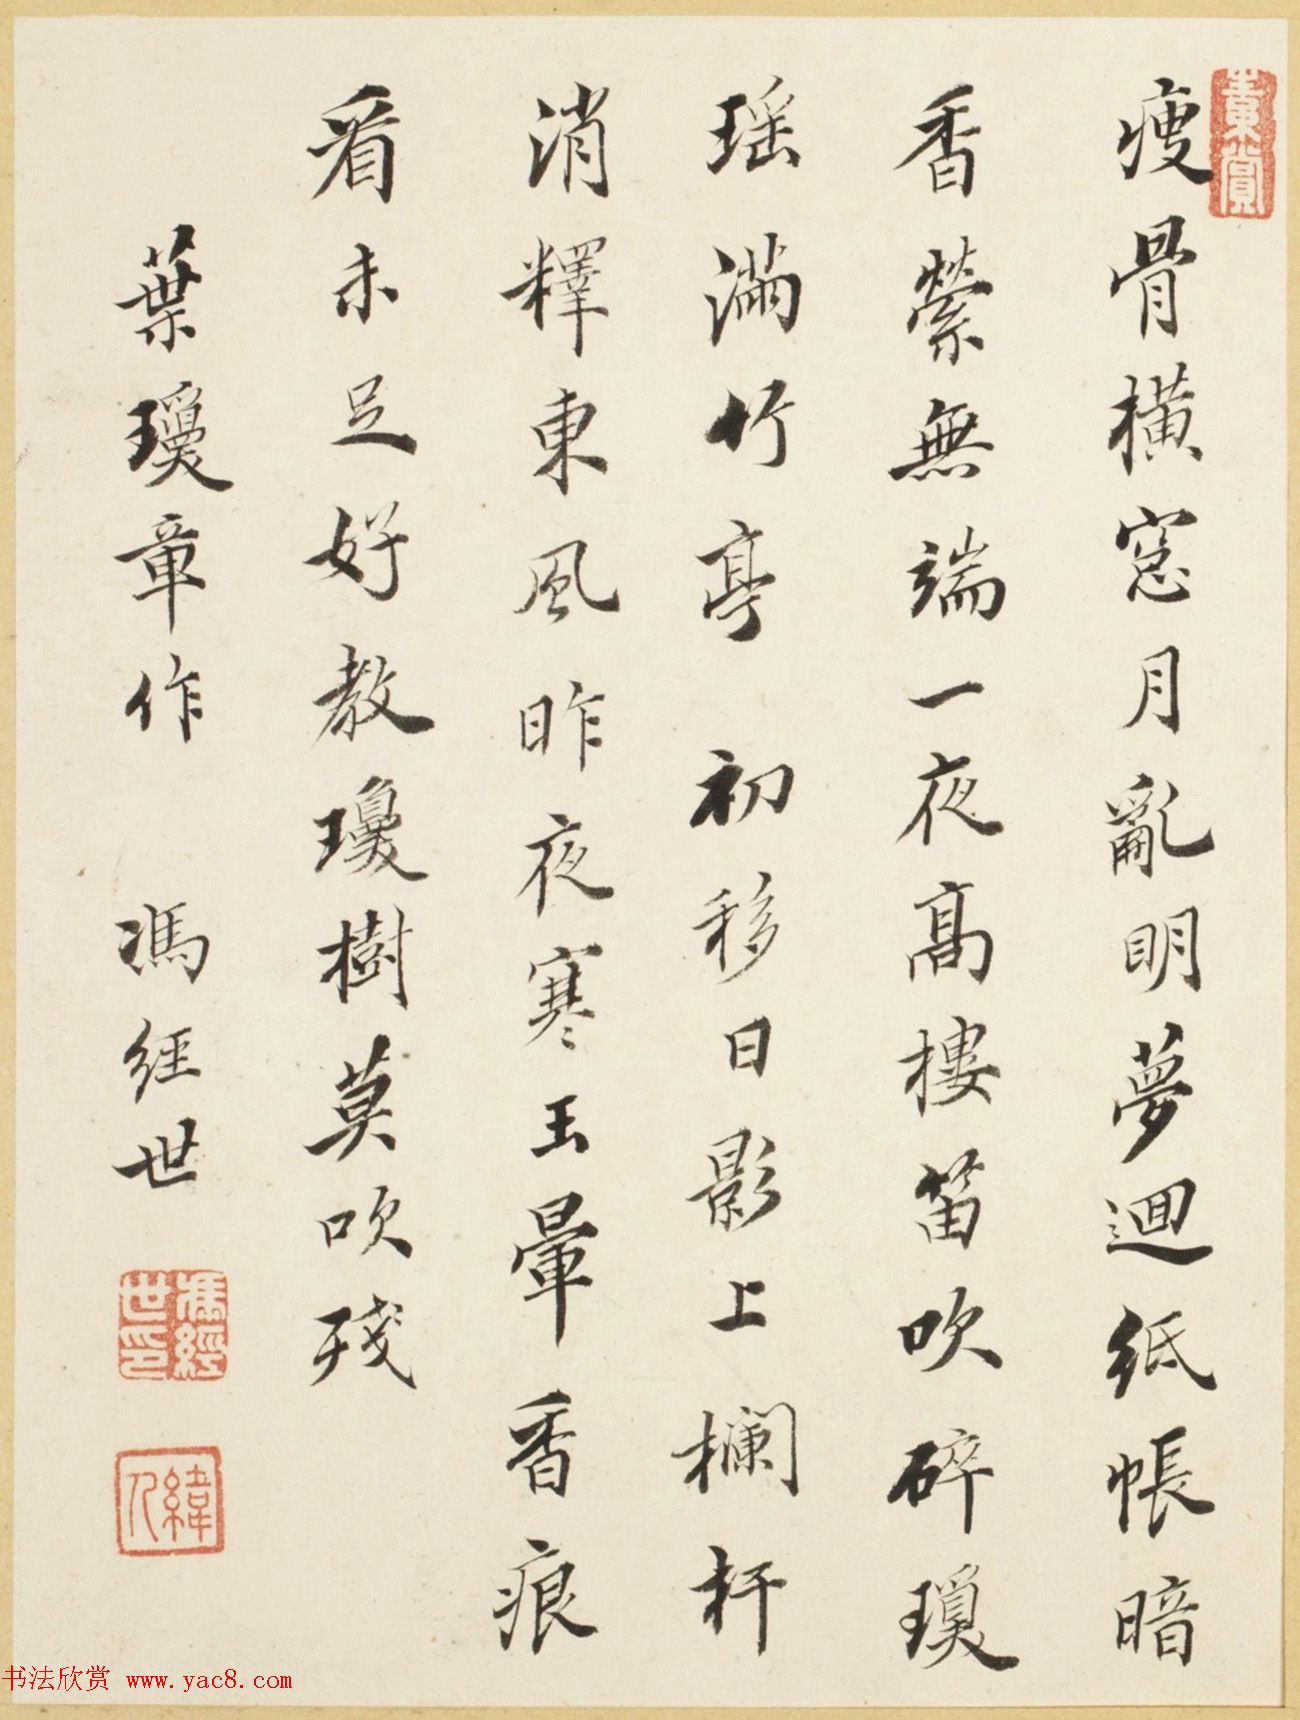 瘦骨橫窓月亂明夢迴紙帳暗
香縈無端一夜髙樓笛吹碎瓊
瑶滿竹亭 初移日影上欄杆
消釋東風昨夜寒玉暈香痕
看未足好教瓊樹莫吹殘
葉瓊章作 馮經世
馮經世印
緯人
書法欣赏 www.yac8.com